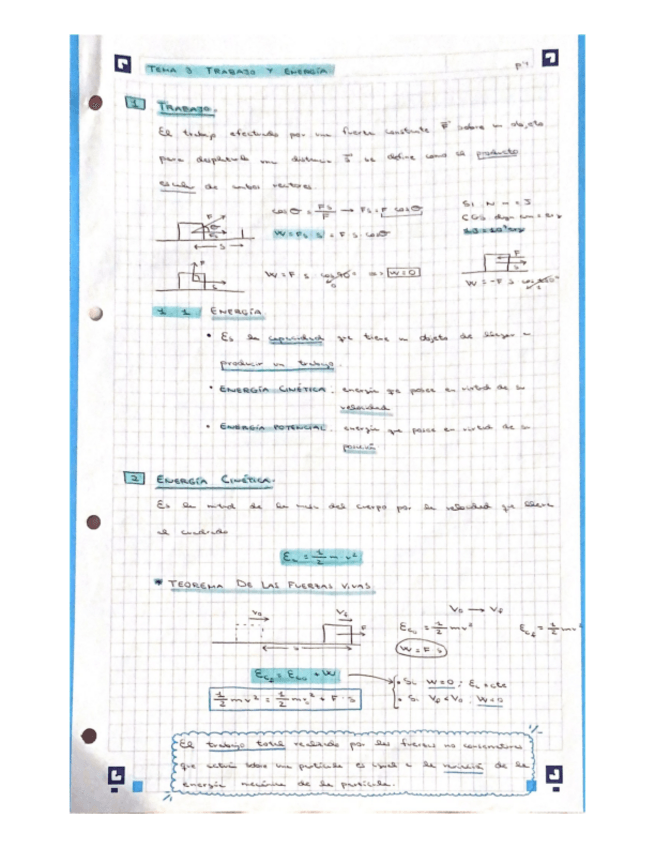 TEMA 3 TRABAJO Y ENERGÍA
1 TRABAJO.
El trabajo efectuado por una fuerza constante F sobre un objeto
para desplazarlo una distancia s se define como el producto
escalar de ambos vectores.
cosθ = Fs/F → Fs = F cosθ
SI N·m = J
W = Fs·s = F·s·cosθ
W = F·s·cos90° ⇒ W=0
W = -F·s
1.1 ENERGÍA
• Es la capacidad que tiene un objeto de llegar a
producir un trabajo.
• ENERGÍA CINÉTICA: energía que posee en virtud de su
velocidad
• ENERGÍA POTENCIAL: energía que posee en virtud de su
posición
2 ENERGÍA CINÉTICA.
Es la mitad de la masa del cuerpo por la velocidad que lleva
al cuadrado
Ec = 1/2 m·v²
* TEOREMA DE LAS FUERZAS VIVAS
V0 → Vf
Ec0 = 1/2 mv²
Ecf = 1/2 mv²
W = F·s
Ecf = Ec0 + W
• Si W=0: Ec = cte
1/2 mv² = 1/2 mv0² + F·s
• Si Vf<V0: W<0
El trabajo total realizado por las fuerzas no conservativas
que actúa sobre una partícula es igual a la variación de la
energía mecánica de la partícula.